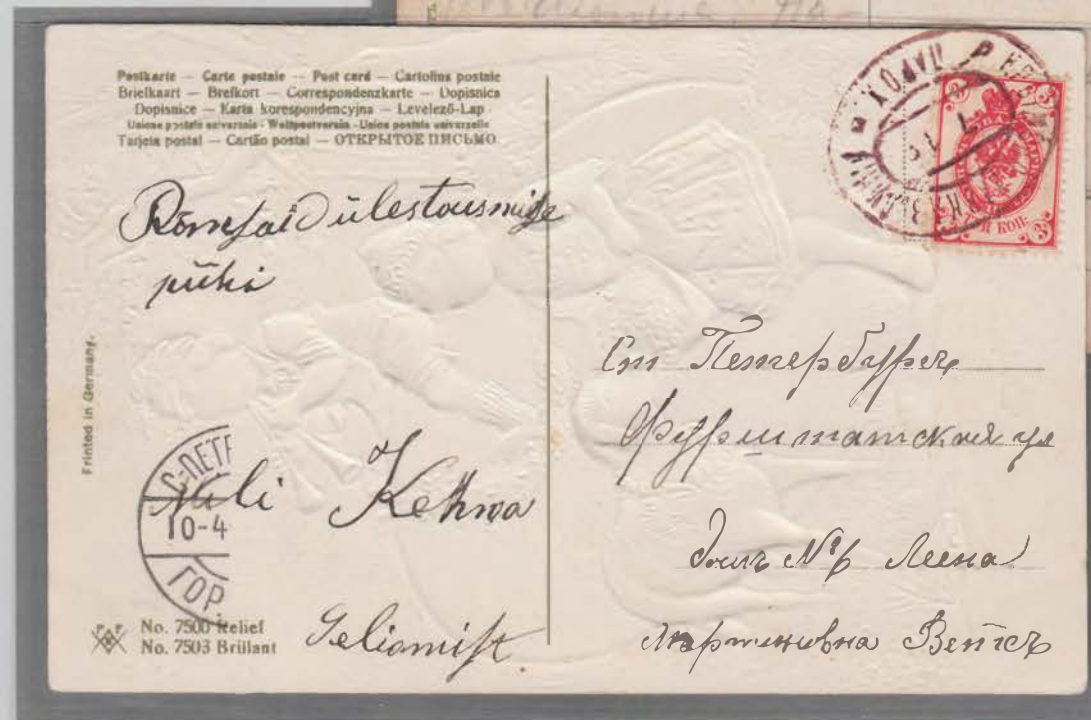 Postkarte — Carte postale — Post card — Cartolina postale
Briefkaart — Brefkort — Correspondenzkarte — Dopisnica
Dopisnice — Karta korespondencyjna — Levelező-Lap
Unione postale universale - Weltpostverein - Union postale universelle
Tarjeta postal — Cartão postal — ОТКРЫТОЕ ПИСЬМО
ülestousmise
pühi
Printed in Germany.
С-ПЕТЕ
10-4
ГОР
Juli Kehwa
No. 7500 Relief
No. 7503 Brillant
3 3
КОП.
3
Ст Петербургъ
Фурштатская ул
домъ № 6 Леена
Мартиновна